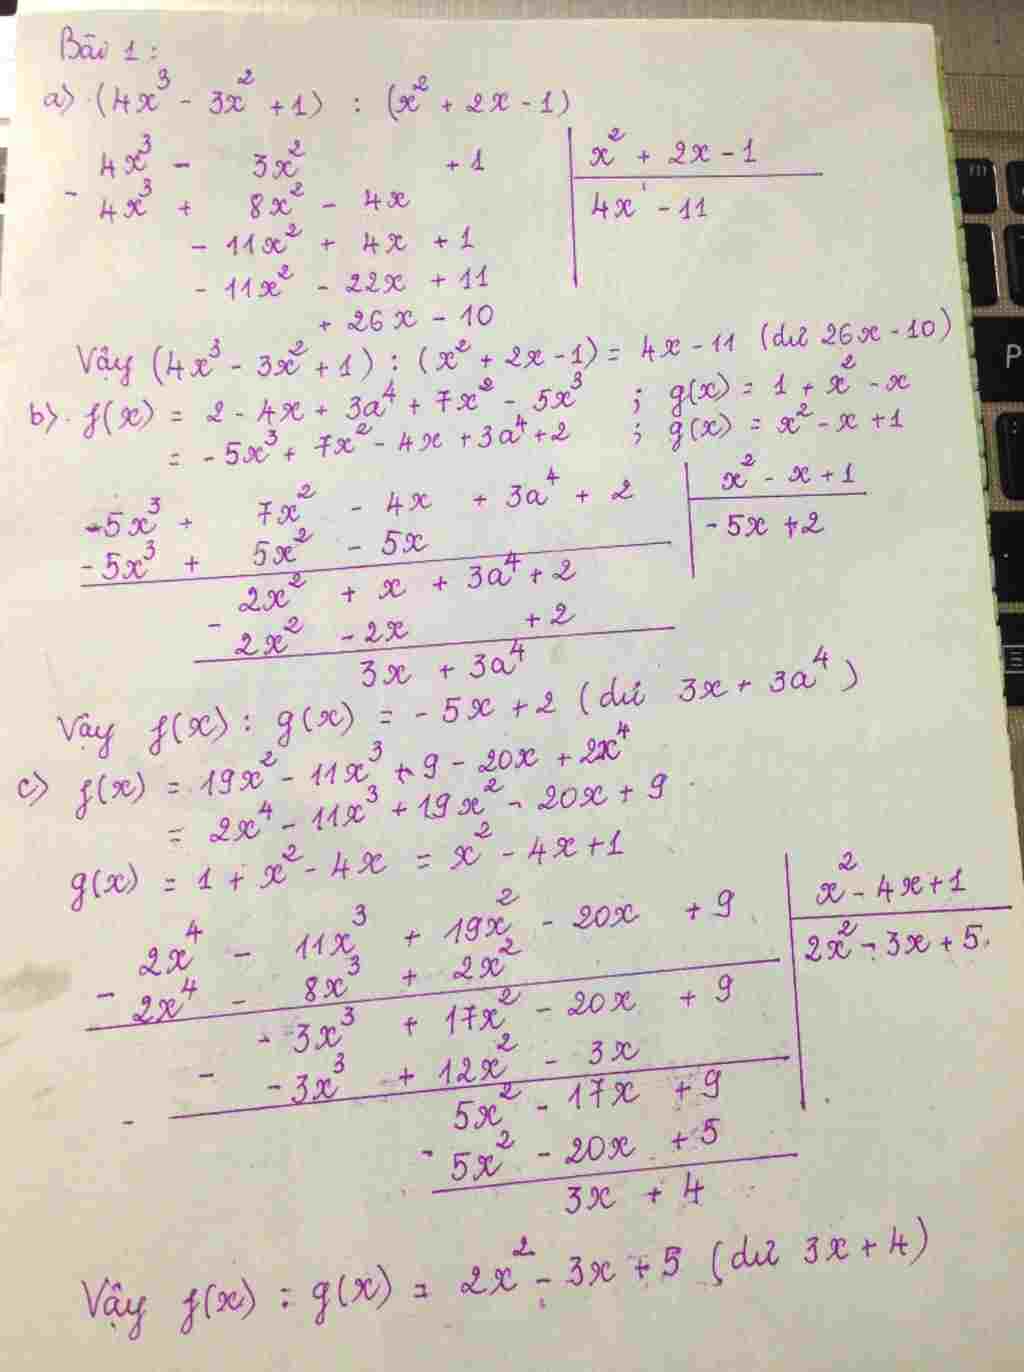 Bài 1:
a) (4x³ - 3x² + 1) : (x² + 2x - 1)
4x³ - 3x² + 1 | x² + 2x - 1
- 4x³ + 8x² - 4x | 4x - 11
- 11x² + 4x + 1
- 11x² - 22x + 11
+ 26x - 10
Vậy (4x³ - 3x² + 1) : (x² + 2x - 1) = 4x - 11 (dư 26x - 10)
b) f(x) = 2 - 4x + 3a⁴ + 7x² - 5x³ ; g(x) = 1 + x² - x
= - 5x³ + 7x² - 4x + 3a⁴ + 2 ; g(x) = x² - x + 1
-5x³ + 7x² - 4x + 3a⁴ + 2 | x² - x + 1
-5x³ + 5x² - 5x | -5x + 2
2x² + x + 3a⁴ + 2
- 2x² - 2x + 2
3x + 3a⁴
Vậy f(x) : g(x) = - 5x + 2 (dư 3x + 3a⁴)
c) f(x) = 19x² - 11x³ + 9 - 20x + 2x⁴
= 2x⁴ - 11x³ + 19x² - 20x + 9
g(x) = 1 + x² - 4x = x² - 4x + 1
2x⁴ - 11x³ + 19x² - 20x + 9 | x² - 4x + 1
- 2x⁴ - 8x³ + 2x² | 2x² - 3x + 5
- 3x³ + 17x² - 20x + 9
- - 3x³ + 12x² - 3x
- 5x² - 17x + 9
- 5x² - 20x + 5
3x + 4
Vậy f(x) : g(x) = 2x² - 3x + 5 (dư 3x + 4)
P